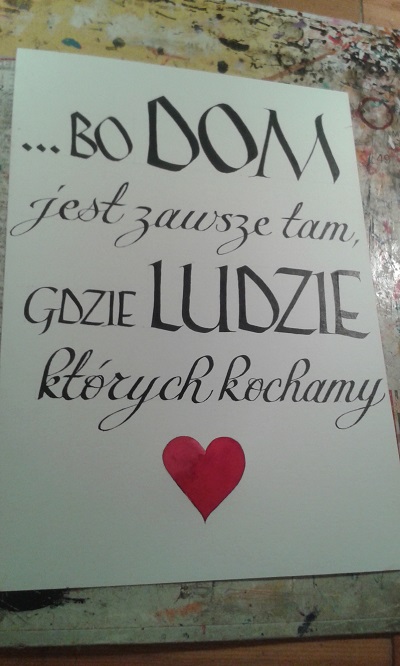 ...BO DOM
jest zawsze tam,
GDZIE LUDZIE
których kochamy